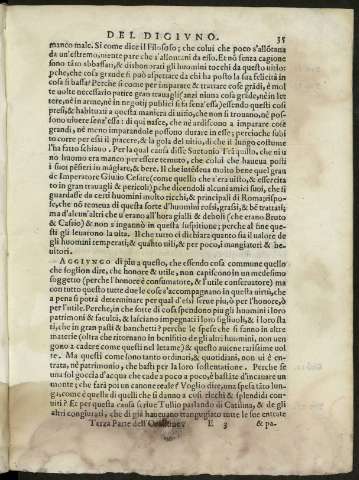 DEL DIGIVNO. 35
manco male. Si come dice il Filosofo; che colui che poco s'allōtana
da un'estremo, mente pare che s'allontani da esso. Et nō senza cagione
sono tāto abbassati, & disbonorati gli huomini tocchi da questo uitio:
pche, che cosa grande si può aspettare da chi ha posto la sua felicità in
cosa sì bassa? Perche sì come per imparare & trattare cose grādi, è mol
te uolte necessario patire gran trauagli; anzi niuna cosa grāde, nè in let
tere, nè in arme, nè in negotij publici si fa senz'essa; essendo questi così
presi, & habituati a questa maniera di uitio, che non si trouano, nè pos
sono uiuere senz'essa: di quì nasce, che nè ardiscono a imparare cose
grandi, nè meno imparandole possono durare in esse; percioche subi
to corre per essi il piacere, & la gola del uitio, di che il lungo costume
l'ha fatto schiauo. Per la qual causa disse Suetonio Trāquillo, che niu
no huomo era manco per essere temuto, che colui che haueua posti
i suoi pēsieri in māgiare, & bere. Il che intēdeua molto bene quel gran
de Imperatore Giulio Cesare (come quello che s'era uisto, & essercita
to in gran trauagli & pericoli) pche dicendoli alcuni amici suoi, che si
guardasse da certi huomini molto ricchi, & principali di Roma; rispo-
se, che nō temeua di questa sorte d'huomini rossi, grassi, & bē trattati;
ma d'alcun'altri che u'erano all'hora gialli & deboli (che erano Bruto
& Cassio) & non s'ingannò in questa suspitione; perche al fine que-
sti gli leuarono la uita. Il che tutto ci dichiara quanto sia il ualore de
gli huomini temperati; & quāto uili, & per poco, i mangiatori & be-
uitori.
AGGIVNGO di piu a questo, che essendo cosa commune quello
che soglion dire, che honore & utile, non capiscono in un medesimo
soggetto (perche l'honore è consumatore, & l'utile conseruatore) ma
con tutto questo tutte due le cose s'accompagnano in questa uirtù, che
a pena si potrà determinare per qual d'essi serue piu, ò per l'honore, ò
per l'utile. Perche, in che sorte di cosa spendono piu gli huomini i loro
patrimoni & facultà, & lasciano impegnati i loro figliuoli, & i loro sta
ti, che in gran pasti & banchetti? perche le spese che si fanno in altre
materie (oltra che ritornano in benificio de gli altri huomini, non uen
gono a cadere come questi nel letame) & questo auiene rarissime uol
te. Ma questi come sono tanto ordinari, & quotidiani, non ui è en-
trata, nè patrimonio, che basti per la loro sostentatione. Perche se
una sol goccia d'acqua che cade a poco a poco, è bastāte d'incauare un
monte; che farà poi un canone reale? Voglio dire, una spesa tāto lun-
ga, come è quella di quelli che si danno a cosi ricchi & splendidi con-
uiti? Et per questa causa scriue Tullio parlando di Catilina, & de gli
altri congiurati, che di già haueuano trangugiato tutte le sue entrate
Terza Parte dell'Oratione. E 3 & pa-